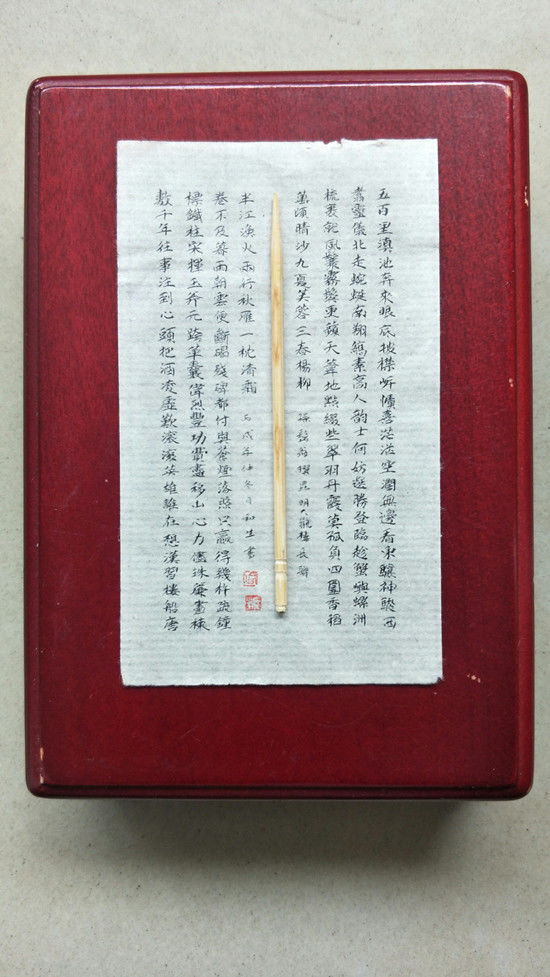 五百里滇池奔來眼底披襟岸幘喜茫茫空闊無邊看東驤神駿西
翥靈儀北走蜿蜒南翔縞素高人韻士何妨選勝登臨趁蟹嶼螺洲
梳裹就風鬟霧鬢更蘋天葦地點綴些翠羽丹霞莫孤負四圍香稻
萬頃晴沙九夏芙蓉三春楊柳 孫髯翁撰昆明大觀樓長聯
數千年往事注到心頭把酒凌虛歎滾滾英雄誰在想漢習樓船唐
標鐵柱宋揮玉斧元跨革囊偉烈豐功費盡移山心力儘珠簾畫棟
卷不及暮雨朝雲便斷碣殘碑都付與蒼煙落照只贏得幾杵疏鐘
半江漁火兩行秋雁一枕清霜 丙戌年仲冬月和生書